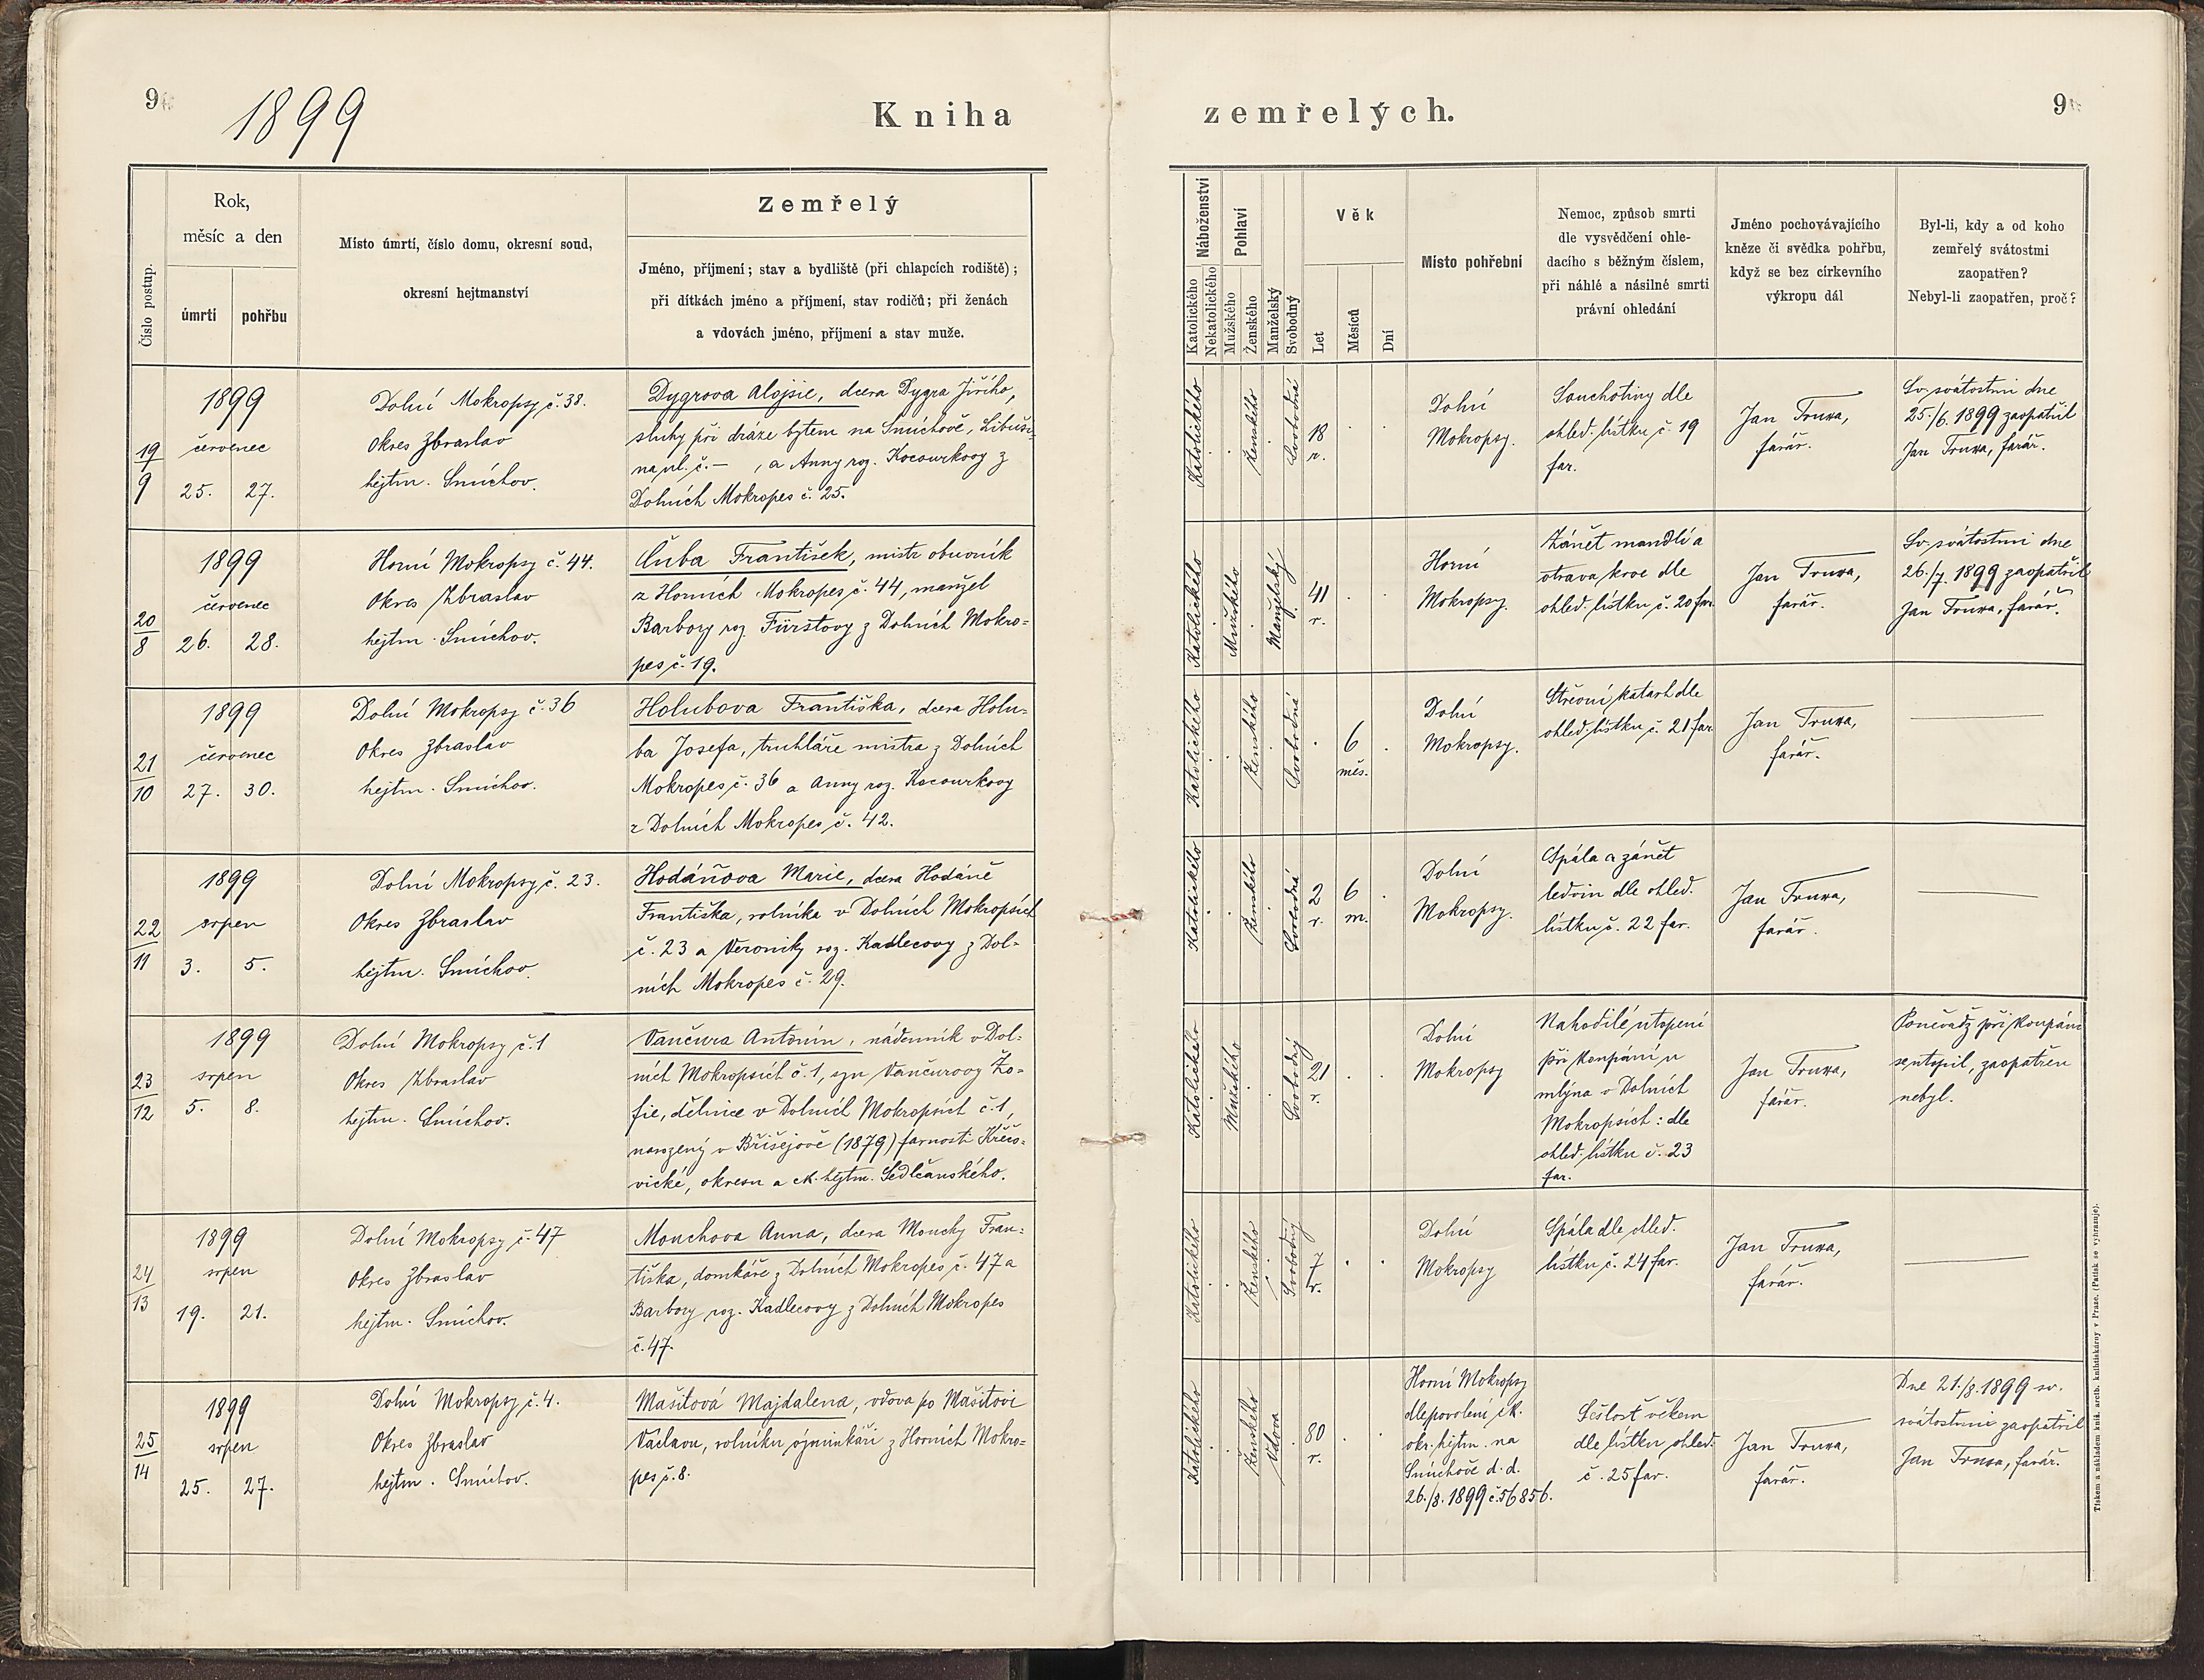 9
1899
Kniha
Číslo postup.
Rok,
měsíc a den
úmrtí
pohřbu
Místo úmrtí, číslo domu, okresní soud,
okresní hejtmanství
Zemřelý
Jméno, příjmení; stav a bydliště (při chlapcích rodiště);
při dítkách jméno a příjmení, stav rodičů; při ženách
a vdovách jméno, příjmení a stav muže.
19
9
1899
červenec
25. 27.
Dolní Mokropsy č. 38.
Okres Zbraslav
hejtm. Smíchov.
Dygrova Aloisie, dcera Dygra Jiřího,
sluhy při dráze bytem na Smíchově, Libuši-
na ul. č. – , a Anny roz. Kocourkovy z
Dolních Mokropes č. 25.
20
8
1899
červenec
26. 28.
Horní Mokropsy č. 44.
Okres Zbraslav
hejtm. Smíchov.
Čuba František, mistr obuvník
z Horních Mokropes č. 44, manžel
Barbory roz. Fürstovy z Dolních Mokro=
pes č. 19.
21
10
1899
červenec
27. 30.
Dolní Mokropsy č. 36
Okres Zbraslav
hejtm. Smíchov.
Holubova Františka, dcera Holu=
ba Josefa, truhláře mistra z Dolních
Mokropes č. 36 a Anny roz. Kocourkovy
z Dolních Mokropes č. 42.
22
11
1899
srpen
3. 5.
Dolní Mokropsy č. 23.
Okres Zbraslav
hejtm. Smíchov.
Hodáňova Marie, dcera Hodáně
Františka, rolníka v Dolních Mokropsích
č. 23 a Veroniky roz. Kadlecovy z Dol=
ních Mokropes č. 29.
23
12
1899
srpen
5. 8.
Dolní Mokropsy č. 1
Okres Zbraslav
hejtm. Smíchov.
Vančura Antonín, nádenník v Dol=
ních Mokropsích č. 1, syn Vančurovy Žo=
fie, dělnice v Dolních Mokropsích č. 1,
narozený v (1879) farnosti Křečo=
vické, okresu a ck. hejtm. Sedlčanského.
24
13
1899
srpen
19. 21.
Dolní Mokropsy č. 47
Okres Zbraslav
hejtm. Smíchov.
Mouchova Anna, dcera Mouchy Fran=
tiška, domkáře z Dolních Mokropes č. 47 a
Barbory roz. Kadlecovy z Dolních Mokropes
č. 47.
25
14
1899
srpen
25. 27.
Dolní Mokropsy č. 4.
Okres Zbraslav
hejtm. Smíchov.
Mašitová Majdalena, vdova po Mašitovi
Václavu, rolníku výminkáři z Horních Mokro=
pes č. 8.
zemřelých.
9
Náboženství
Katolického
Nekatolického
Pohlaví
Mužského
Ženského
Manželský
Svobodný
Věk
Let
Měsíců
Dní
Místo pohřební
Nemoc, způsob smrti
dle vysvědčení ohle-
dacího s běžným číslem,
při náhlé a násilné smrti
právní ohledání
Jméno pochovávajícího
kněze či svědka pohřbu,
když se bez církevního
výkropu dál
Byl-li, kdy a od koho
zemřelý svátostmi
zaopatřen?
Nebyl-li zaopatřen, proč?
Katolického
Ženského
Svobodná
18
r.
Dolní
Mokropsy.
Souchotiny dle
ohled. lístku č. 19
far.
Jan Truxa,
farář.
Sv. svátostmi dne
25./6. 1899 zaopatřil
Jan Truxa, farář.
Katolického
Mužského
Manželský
41
r.
Horní
Mokropsy.
Zánět mandlí a
otrava krve dle
ohled. lístku č. 20 far.
Jan Truxa,
farář.
Sv. svátostmi dne
26./7. 1899 zaopatřil
Jan Truxa, farář.
Katolického
Ženského
Svobodná
6
měs.
Dolní
Mokropsy.
Střevní katarh dle
ohled. lístku č. 21 far.
Jan Truxa,
farář.
Katolického
Ženského
Svobodná
2
r.
6
m.
Dolní
Mokropsy.
Spála a zánět
ledvin dle ohled.
lístku č. 22 far.
Jan Truxa,
farář.
Katolického
Mužského
Svobodný
21
r.
Dolní
Mokropsy
Nahodilé utopení
při koupání u
mlýna v Dolních
Mokropsích: dle
ohled. lístku č. 23
far.
Jan Truxa,
farář.
Poněvadž při koupání
se utopil, zaopatřen
nebyl.
Katolického
Ženského
Svobodný
7
r.
Dolní
Mokropsy
Spála dle ohled.
lístku č. 24 far.
Jan Truxa,
farář.
Katolického
Ženského
Vdova
80
r.
Horní Mokropsy
dle povolení ck.
okr. hejtm. na
Smíchově d. d.
26./8. 1899 č. 56856.
Sešlost věkem
dle lístku ohled.
č. 25 far.
Jan Truxa,
farář.
Dne 21./8. 1899 sv.
svátostmi zaopatřil
Jan Truxa, farář.
Tiskem a nákladem kníž. arcib. knihtiskárny v Praze. (Patisk se vyhrazuje).